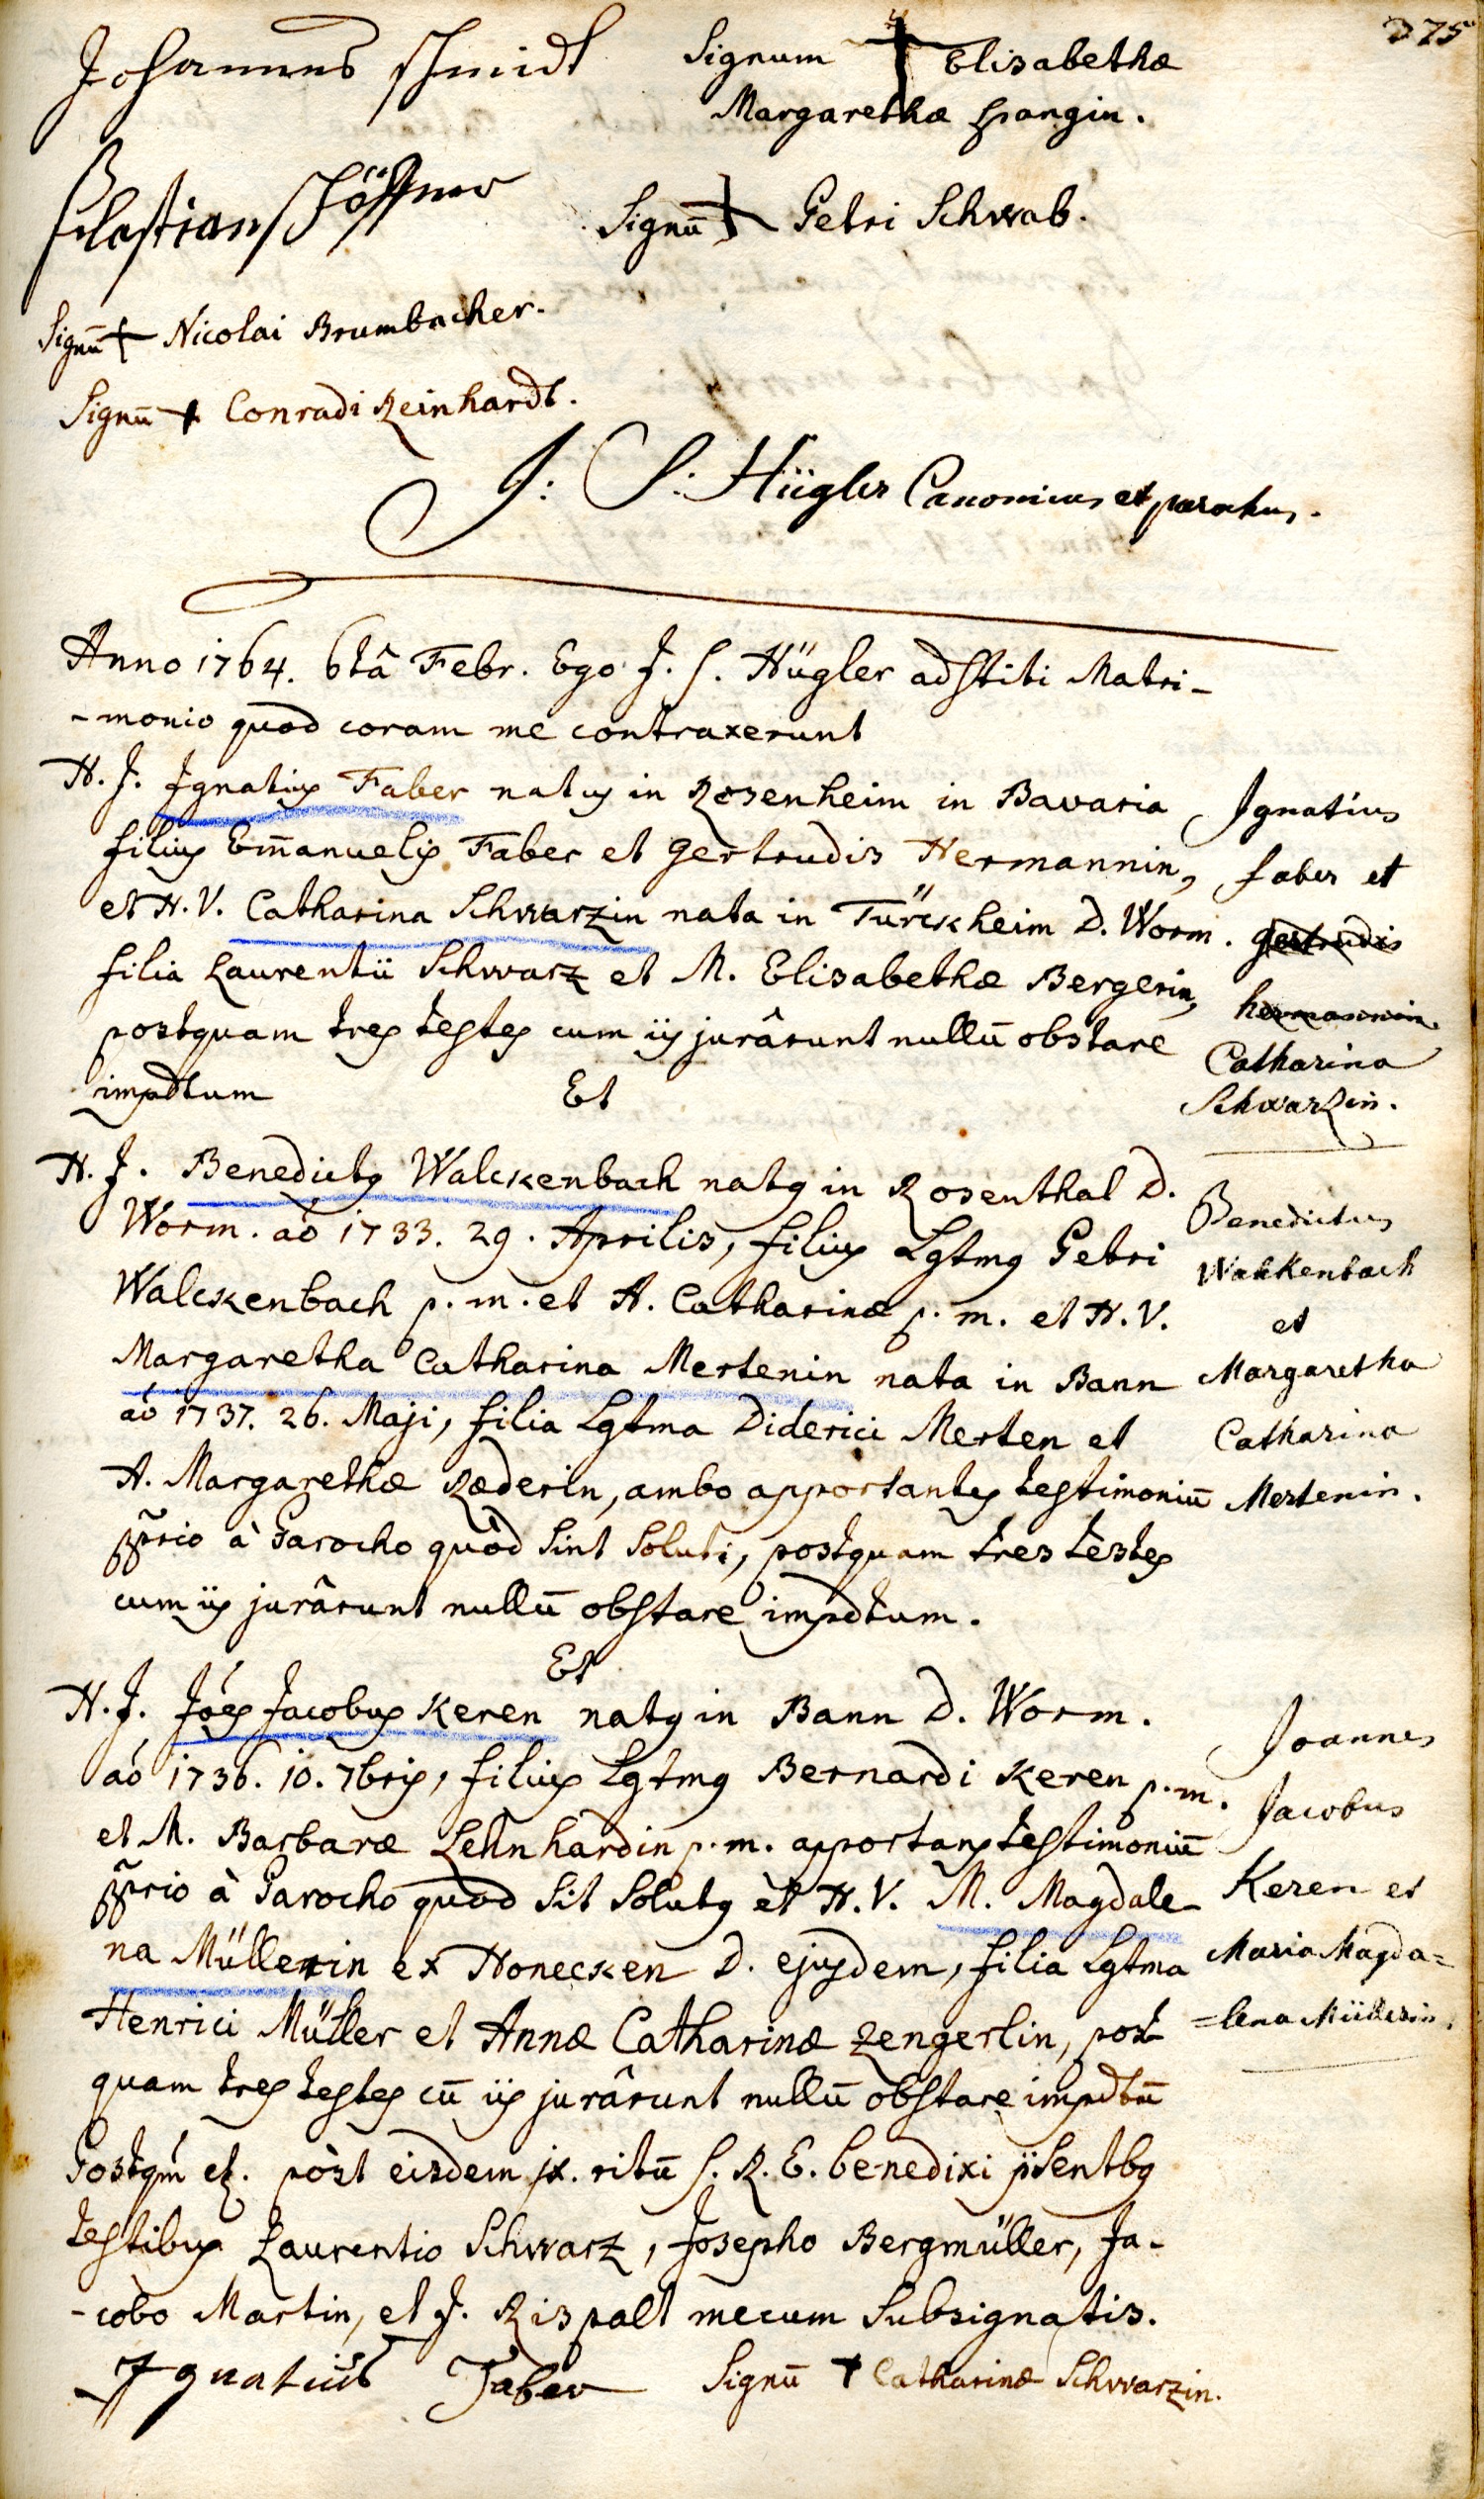 275
Johannes Schmidt
Signum † Elisabethæ
Margarethæ Spangin.
Sebastian Höffner
Signū † Petri Schwab.
Signū † Nicolai Brumbacher.
Signū † Conradi Reinhardt.
J: S: Hügler Canonicus et parochus.
Anno 1764. 6tâ Febr. Ego J. S. Hügler adstiti Matri-
-monio quod coram me contraxerunt
H. J. Ignatius Faber natus in Rosenheim in Bavaria
filius Em̄anuelis Faber et Gertrudis Hermannin,
et H. V. Catharina Schwarzin nata in Türckheim D. Worm.
filia Laurentii Schwarz et M. Elisabethæ Bergerin,
postquam tres testes cum iis jurârunt nullū obstare
impdtum Et
Ignatius
faber et
Gertrudis
hermannin.
Catharina
Schwarzin.
H. J. Benedictus Walckenbach natus in Rosenthal D.
Worm. aō 1733. 29. Aprilis, filius Lgtmus Petri
Walckenbach p. m. et A. Catharinæ p. m. et H. V.
Margaretha Catharina Mertenin nata in Bann
aō 1737. 26. Maji, filia Lgtma Diderici Merten et
A. Margarethæ Ræderin, ambo apportantes testimoniū
pprio à Parocho quòd sint soluti, postquam tres testes
cum iis jurârunt nullū obstare impdtum.
Benedictus
Walkenbach
et
Margaretha
Catharina
Mertenin.
Et
H. J. Jóes Jacobus Keren natus in Bann D. Worm.
aō 1736. 10. 7bris, filius Lgtmus Bernardi Keren p. m.
et M. Barbaræ Lehnhardin p. m. apportans testimoniū
pprio à Parocho quod sit solutus et H. V. M. Magdale-
na Müllerin ex Honecken D. ejusdem, filia Lgtma
Henrici Müller et Annæ Catharinæ Zengerlin, post
quam tres testes cū iis jurârunt nullū obstare impdtū
Joannes
Jacobus
Keren et
Maria Magda=
=lena Müllerin.
Postqm̄ et. pòst eisdem jx. ritū S. R. E. benedixi p̄sentbus
testibus Laurentio Schwarz, Josepho Bergmüller, Ja-
-cobo Martin, et J. Rispalt mecum subsignatis.
Ignatius Faber Signū † Catharinæ Schwarzin.